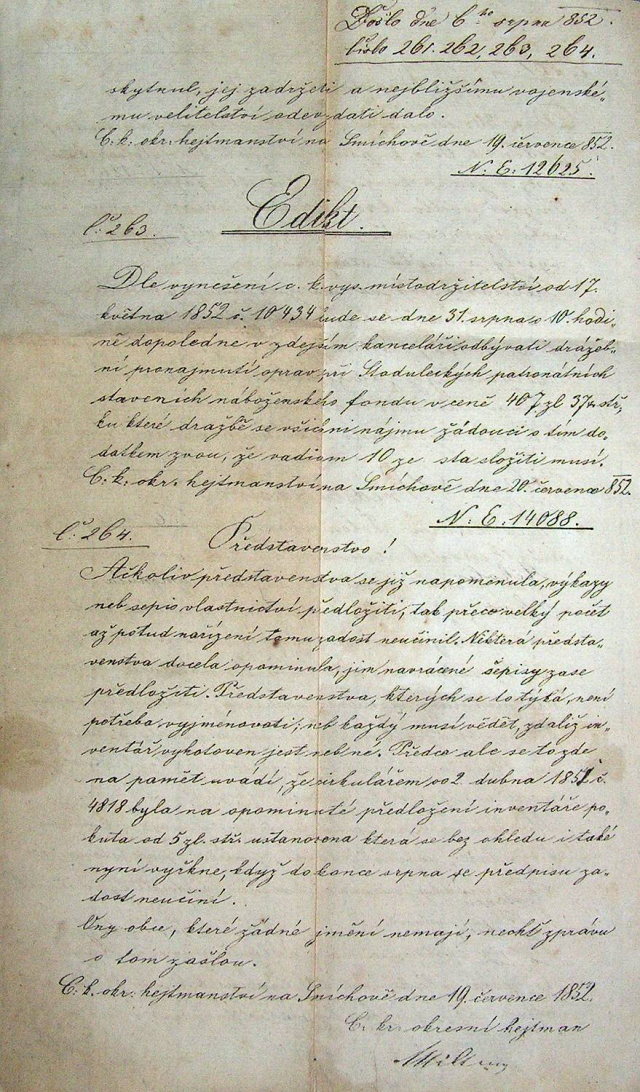 Došlo dne 6ho srpna 852.
číslo 261. 262, 263, 264.
skytnul, jej zadržeti a nejbližšímu vojenské-
mu velitelství odevzdati dalo.
C. k. okr. hejtmanství na Smíchově dne 19. července 852.
N. E. 12625.
Edikt.
č. 263.
Dle vynešení c. k. vys. místodržitelství od 17.
května 1852 č. 10434 bude se dne 31. srpna o 10. hodi-
ně dopoledne v zdejším kanceláři odbývati dražeb-
ní pronajmutí oprav při Stoduleckých patronátních
staveních náboženského fondu v ceně 407 zl 37 kr stř,
ku které dražbě se všichni nájmu žádoucí s tím do-
datkem zvou, že vadium 10 ze sta složiti musí.
C. k. okr. hejtmanství na Smíchově dne 20. července 852.
N. E. 14088.
č. 264.
Představenstvo!
Ačkoliv představenstva se již napomenula, výkazy
neb sepis vlastnictví předložiti, tak přece velký počet
až potud nařízení tomu zadost neučinil. Některá předsta-
venstva docela opominula, jim navrácené sepisy zase
předložiti. Představenstva, kterých se to týká, není
potřeba vyjmenovati, neb každý musí vědět, zdaliž in-
ventář vyhotoven jest neb ne. Předce ale se to zde
na paměť uvadí že cirkulářem od 2. dubna 1851 č.
4818 byla na opominuté předložení inventáře po-
kuta od 5 zl. stř. ustanovena která se bez ohledu i také
nyní vyřkne, když do konce srpna se předpisu za-
dost neučiní.
Ony obce, které žádné jmění nemají, nechť zprávu
o tom zašlou.
C. k. okr. hejtmanství na Smíchově dne 19. července 1852.
C. kr. okresní hejtman